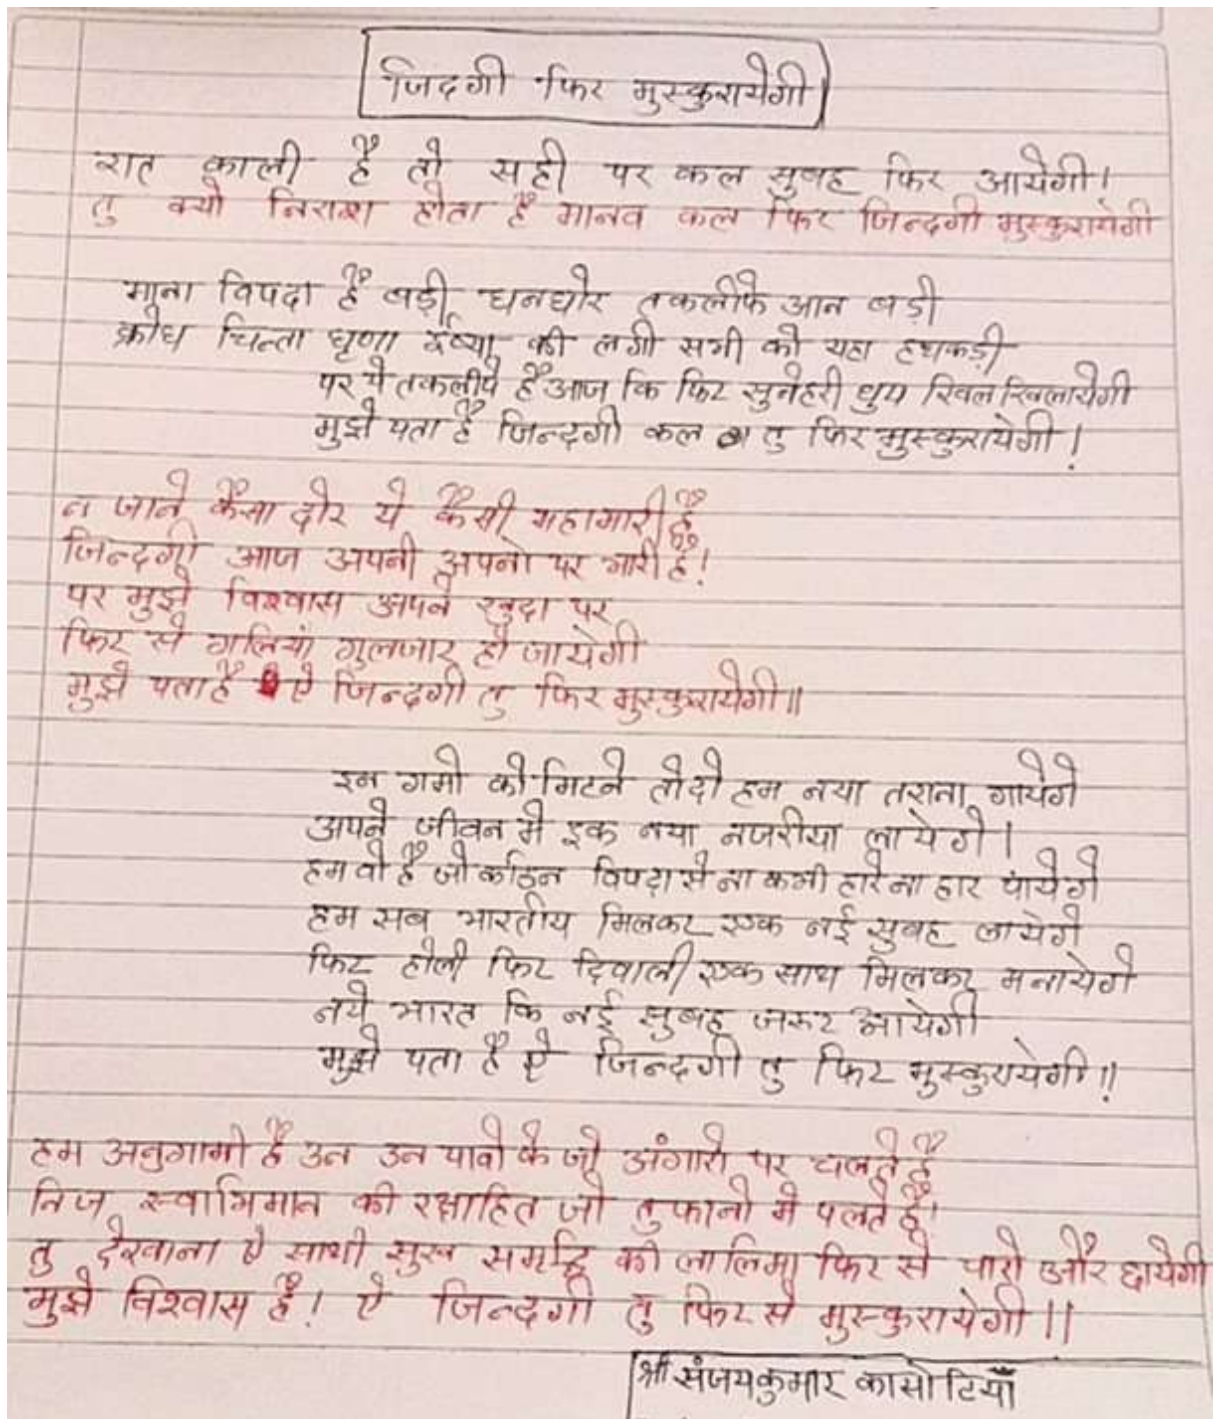 जिदगी फिर मुस्कुरायेगी
रात काली है तो सही पर कल सुबह फिर आयेगी।
तु क्यो निराश होता है मानव कल फिर जिन्दगी मुस्कुरायेगी
माना विपदा है बड़ी घनघोर तकलीफे आन बड़ी
क्रोध चिन्ता घृणा ईष्या की लगी सभी को यहा हथकड़ी
पर ये तकलीपे है आज कि फिर सुनेहरी धुप खिलखिलायेगी
मुझे पता है जिन्दगी कल तु फिर मुस्कुरायेगी!
न जाने कैसा दोर ये कैसी महामारी है
जिन्दगी आज अपनी अपनो पर भारी है!
पर मुझे विश्वास अपने खुदा पर
फिर से गलियां गुलजार हो जायेगी
मुझे पता है ऐ जिन्दगी तु फिर मुस्कुरायेगी॥
इन गमो को मिटने तो दो हम नया तराना गायेगे
अपने जीवन मे इक नया नजरीया लायेगे।
हम वो है जो कठिन विपदा से ना कभी हारे ना हार पायेगे
हम सब भारतीय मिलकर एक नई सुबह लायेगे
फिर होली फिर दिवाली एक साथ मिलकर मनायेगे
नये भारत कि नई सुबह जरूर आयेगी
मुझे पता है ऐ जिन्दगी तु फिर मुस्कुरायेगी॥
हम अनुगामी है उन उन पावो के जो अंगारो पर चलते है
निज स्वाभिमान की रक्षाहित जो तुफानो मे पलते है।
तु देखाना ऐ साथी सुख समृद्धि की लालिमा फिर से चारो और छायेगी
मुझे विश्वास है! ऐ जिन्दगी तु फिर से मुस्कुरायेगी॥
श्री संजयकुमार कासोटियाँ